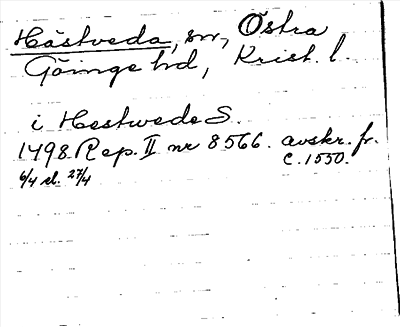 Hästveda, sn, Östra
Göinge hd, Krist. l.
i Hestwede S.
1498 Rep. II nr 8566. avskr. fr.
6/4 el. 27/4 c. 1550.